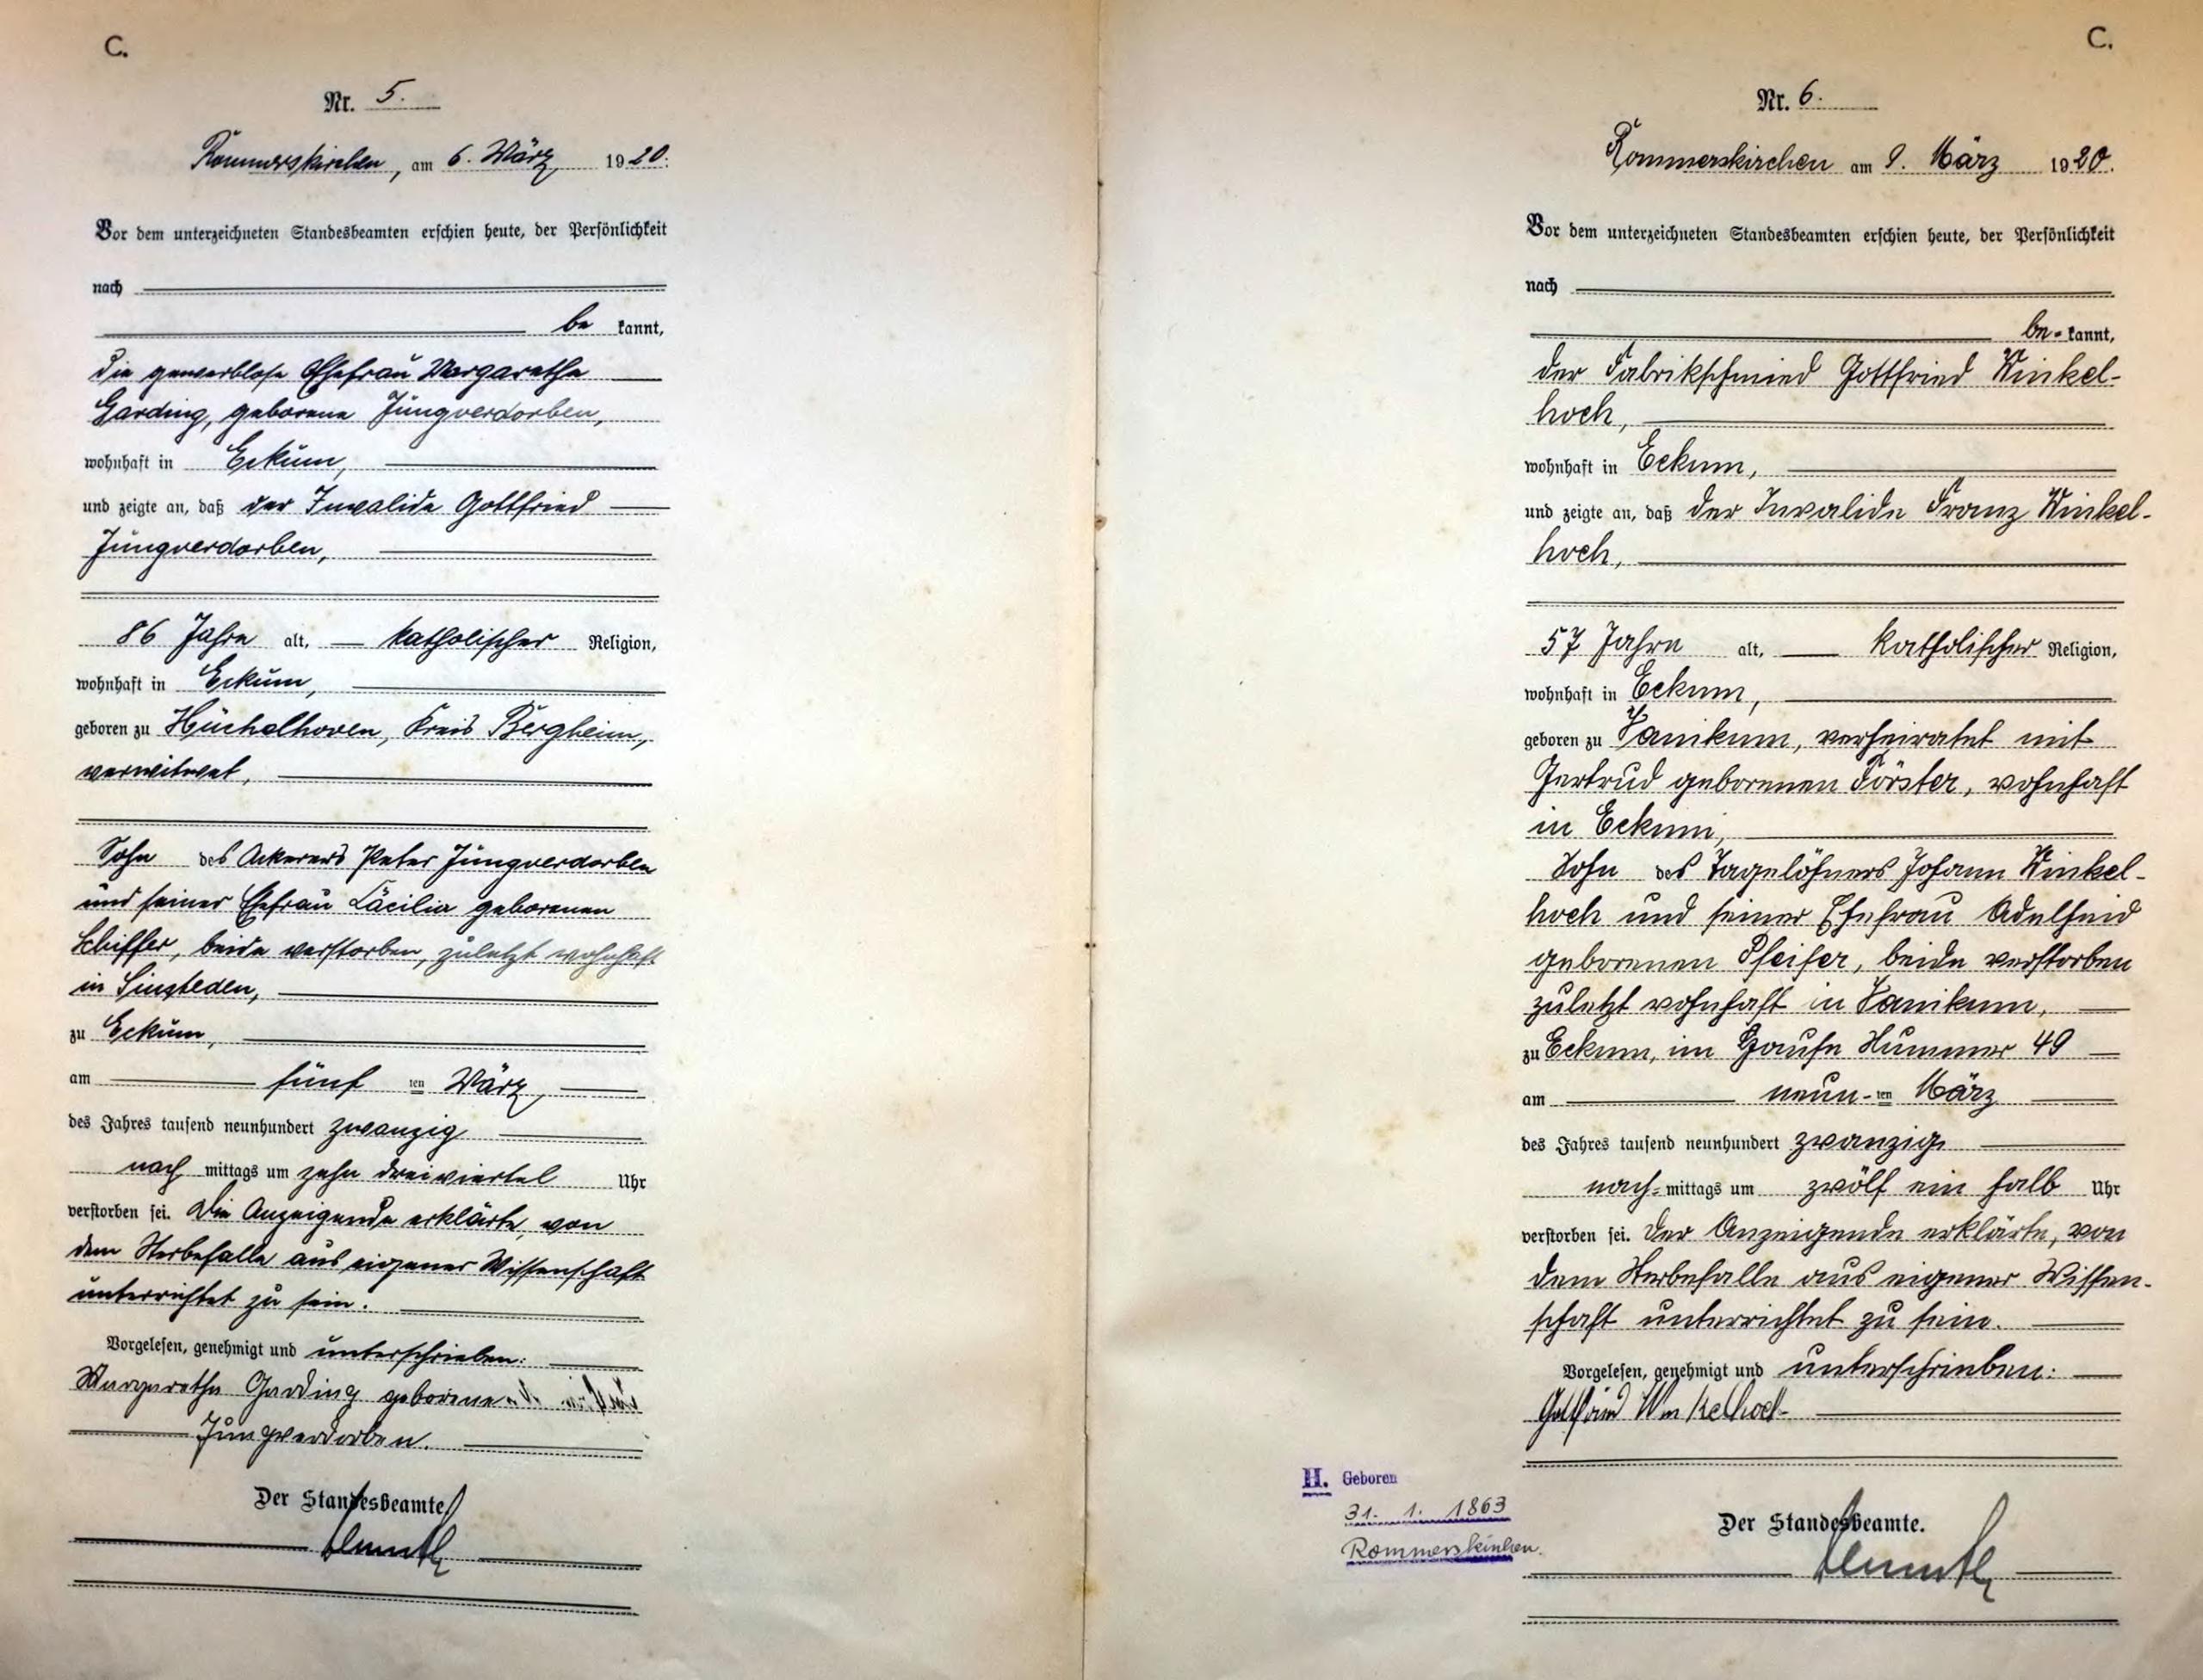 C.
Nr. 5.
Rommerskirchen, am 6. März 1920.
Vor dem unterzeichneten Standesbeamten erschien heute, der Persönlichkeit
nach
be kannt,
die gewerblose Ehefrau Margaretha
Garding, geborene Jüngverdorben,
wohnhaft in Eckum,
und zeigte an, daß der Invalide Gottfried
Jüngverdorben,
86 Jahre alt, katholischer Religion,
wohnhaft in Eckum,
geboren zu Hüchelhoven, Kreis Bergheim,
verwitwet,
Sohn des Ackerers Peter Jüngverdorben
und seiner Ehefrau Cäcilia geborenen
Schiffer, beide verstorben, zuletzt wohnhaft
in Sinsteden,
zu Eckum,
am fünf ten März
des Jahres tausend neunhundert zwanzig
nach mittags um zehn dreiviertel Uhr
verstorben sei. Die Anzeigende erklärte, von
dem Sterbefalle aus eigener Wissenschaft
unterrichtet zu sein.
Vorgelesen, genehmigt und unterschrieben:
Margaretha Garding geborene
Jüngverdorben.
Der Standesbeamte
C.
Nr. 6.
Rommerskirchen am 9. März 1920.
Vor dem unterzeichneten Standesbeamten erschien heute, der Persönlichkeit
nach
be-kannt,
der Fabrikschmied Gottfried Winkel-
hoch,
wohnhaft in Eckum,
und zeigte an, daß der Invalide Franz Winkel-
hoch,
57 Jahre alt, katholischer Religion,
wohnhaft in Eckum,
geboren zu Vanikum, verheiratet mit
Gertrud geborenen Förster, wohnhaft
in Eckum,
Sohn des Tagelöhners Johann Winkel-
hoch und seiner Ehefrau Adelheid
geborenen Pfeifer, beide verstorben
zuletzt wohnhaft in Vanikum,
zu Eckum, im Hause Nummer 49
am neun-ten März
des Jahres tausend neunhundert zwanzig
nach-mittags um zwölf ein halb Uhr
verstorben sei. Der Anzeigende erklärte, von
dem Sterbefalle aus eigener Wissen-
schaft unterrichtet zu sein.
Vorgelesen, genehmigt und unterschrieben:
Gottfried Winkelhoch
H. Geboren
31. 1. 1863
Rommerskirchen.
Der Standesbeamte.